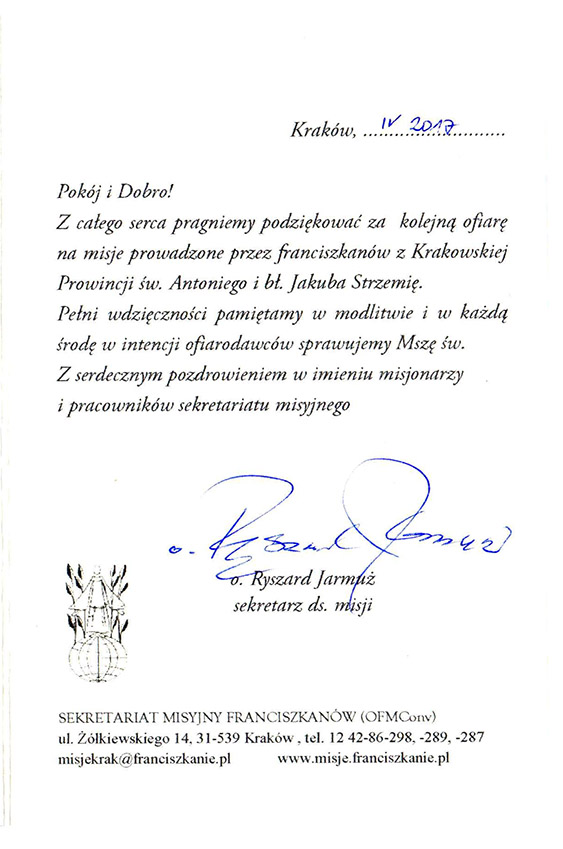 Kraków, ..........................
IV 2017
Pokój i Dobro!
Z całego serca pragniemy podziękować za kolejną ofiarę
na misje prowadzone przez franciszkanów z Krakowskiej
Prowincji św. Antoniego i bł. Jakuba Strzemię.
Pełni wdzięczności pamiętamy w modlitwie i w każdą
środę w intencji ofiarodawców sprawujemy Mszę św.
Z serdecznym pozdrowieniem w imieniu misjonarzy
i pracowników sekretariatu misyjnego
o. Ryszard Jarmuż
o. Ryszard Jarmuż
sekretarz ds. misji
SEKRETARIAT MISYJNY FRANCISZKANÓW (OFMConv)
ul. Żółkiewskiego 14, 31-539 Kraków , tel. 12 42-86-298, -289, -287
misjekrak@franciszkanie.pl www.misje.franciszkanie.pl